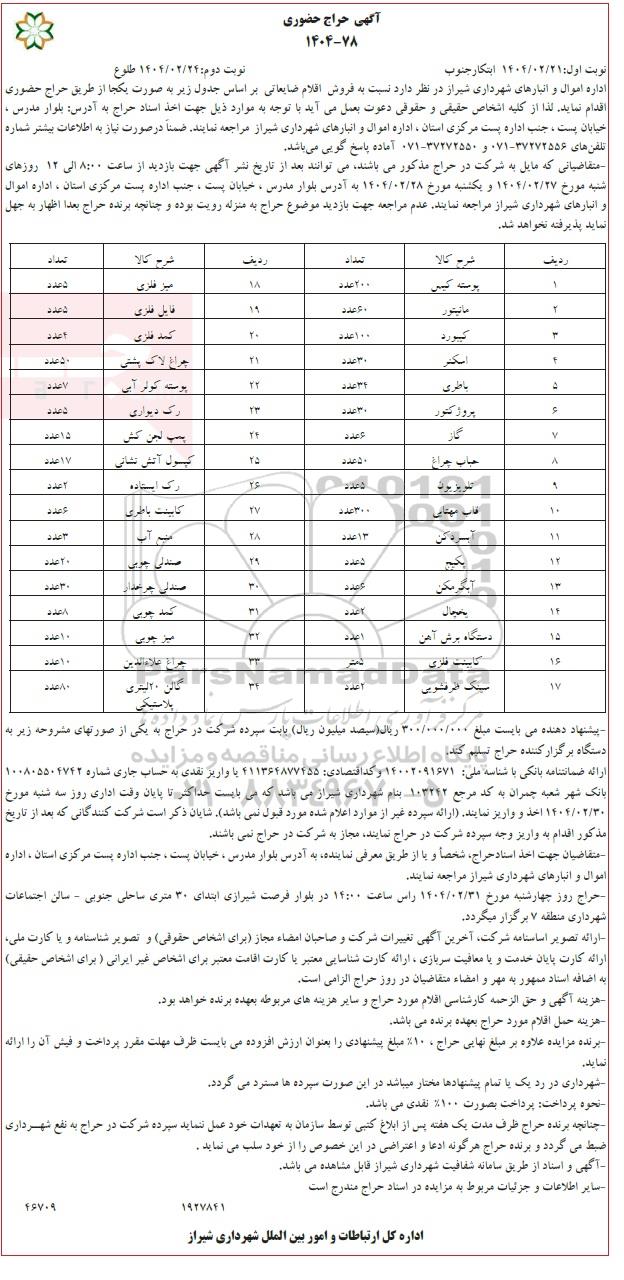 آگهی حراج حضوری
۱۴۰۴-۷۸
نوبت اول: ۱۴۰۴/۰۲/۲۱ ابتکارجنوب نوبت دوم: ۱۴۰۴/۰۲/۲۴ طلوع
اداره اموال و انبارهای شهرداری شیراز در نظر دارد نسبت به فروش اقلام ضایعاتی بر اساس جدول زیر به صورت یکجا از طریق حراج حضوری
اقدام نماید. لذا از کلیه اشخاص حقیقی و حقوقی دعوت بعمل می آید با توجه به موارد ذیل جهت اخذ اسناد حراج به آدرس: بلوار مدرس ،
خیابان پست ، جنب اداره پست مرکزی استان ، اداره اموال و انبارهای شهرداری شیراز مراجعه نمایند. ضمناً درصورت نیاز به اطلاعات بیشتر شماره
تلفن‌های ۳۷۲۷۲۵۵۶-۰۷۱ و ۳۷۲۷۲۵۵۰-۰۷۱ آماده پاسخ گویی می‌باشد.
-متقاضیانی که مایل به شرکت در حراج مذکور می باشند، می توانند بعد از تاریخ نشر آگهی جهت بازدید از ساعت ۸:۰۰ الی ۱۲ روزهای
شنبه مورخ ۱۴۰۴/۰۲/۲۷ و یکشنبه مورخ ۱۴۰۴/۰۲/۲۸ به آدرس بلوار مدرس ، خیابان پست ، جنب اداره پست مرکزی استان ، اداره اموال
و انبارهای شهرداری شیراز مراجعه نمایند. عدم مراجعه جهت بازدید موضوع حراج به منزله رویت بوده و چنانچه برنده حراج بعدا اظهار به جهل
نماید پذیرفته نخواهد شد.
ردیف شرح کالا تعداد ردیف شرح کالا تعداد
۱ پوسته کیس ۲۰۰عدد ۱۸ میز فلزی ۵عدد
۲ مانیتور ۶۰عدد ۱۹ فایل فلزی ۵عدد
۳ کیبورد ۱۰۰عدد ۲۰ کمد فلزی ۴عدد
۴ اسکنر ۳۰عدد ۲۱ چراغ لاک پشتی ۵۰عدد
۵ باطری ۳۴عدد ۲۲ پوسته کولر آبی ۷عدد
۶ پروژکتور ۳۰عدد ۲۳ رک دیواری ۵عدد
۷ گاز ۶عدد ۲۴ پمپ لجن کش ۱۵عدد
۸ حباب چراغ ۵۰عدد ۲۵ کپسول آتش نشانی ۱۷عدد
۹ تلویزیون ۵عدد ۲۶ رک ایستاده ۲عدد
۱۰ قاب مهتابی ۳۰۰عدد ۲۷ کابینت باطری ۶عدد
۱۱ آبسردکن ۱۳عدد ۲۸ منبع آب ۳عدد
۱۲ پکیج ۵عدد ۲۹ صندلی چوبی ۲۰عدد
۱۳ آبگرمکن ۶عدد ۳۰ صندلی چرخدار ۳۰عدد
۱۴ یخچال ۲عدد ۳۱ کمد چوبی ۸عدد
۱۵ دستگاه برش آهن ۱عدد ۳۲ میز چوبی ۱۰عدد
۱۶ کابینت فلزی ۵متر ۳۳ چراغ علاءالدین ۱۰عدد
۱۷ سینک ظرفشویی ۲عدد ۳۴ گالن ۲۰لیتری ۸۰عدد
پلاستیکی
ParsNamadData
-پیشنهاد دهنده می بایست مبلغ ۳۰۰/۰۰۰/۰۰۰ ریال(سیصد میلیون ریال) بابت سپرده شرکت در حراج به یکی از صورتهای مشروحه زیر به
دستگاه برگزارکننده حراج تسلیم کند.
پایگاه اطلاع رسانی مناقصه و مزایده
ارائه ضمانتنامه بانکی با شناسه ملی: ۱۴۰۰۲۰۹۱۶۷۱ وکداقتصادی: ۴۱۱۳۶۴۸۷۷۴۵۵ یا واریز نقدی به حساب جاری شماره ۱۰۰۸۰۵۵۰۴۷۴۲
بانک شهر شعبه چمران به کد مرجع ۱۰۳۲۴۲ بنام شهرداری شیراز می باشد که می بایست حداکثر تا پایان وقت اداری روز سه شنبه مورخ
۱۴۰۴/۰۲/۳۰ اخذ و واریز نمایند. (ارائه سپرده غیر از موارد اعلام شده مورد قبول نمی باشد). شایان ذکر است شرکت کنندگانی که بعد از تاریخ
مذکور اقدام به واریز وجه سپرده شرکت در حراج نمایند، مجاز به شرکت در حراج نمی باشند.
-متقاضیان جهت اخذ اسنادحراج، شخصاً و یا از طریق معرفی نماینده، به آدرس بلوار مدرس ، خیابان پست ، جنب اداره پست مرکزی استان ، اداره
اموال و انبارهای شهرداری شیراز مراجعه نمایند.
-حراج روز چهارشنبه مورخ ۱۴۰۴/۰۲/۳۱ راس ساعت ۱۴:۰۰ در بلوار فرصت شیرازی ابتدای ۳۰ متری ساحلی جنوبی - سالن اجتماعات
شهرداری منطقه ۷ برگزار میگردد.
-ارائه تصویر اساسنامه شرکت، آخرین آگهی تغییرات شرکت و صاحبان امضاء مجاز (برای اشخاص حقوقی) و تصویر شناسنامه و یا کارت ملی،
ارائه کارت پایان خدمت و یا معافیت سربازی ، ارائه کارت شناسایی معتبر یا کارت اقامت معتبر برای اشخاص غیر ایرانی ( برای اشخاص حقیقی)
به اضافه اسناد ممهور به مهر و امضاء متقاضیان در روز حراج الزامی است.
-هزینه آگهی و حق الزحمه کارشناسی اقلام مورد حراج و سایر هزینه های مربوطه بعهده برنده خواهد بود.
-هزینه حمل اقلام مورد حراج بعهده برنده می باشد.
-برنده مزایده علاوه بر مبلغ نهایی حراج ، ۱۰٪ مبلغ پیشنهادی را بعنوان ارزش افزوده می بایست ظرف مهلت مقرر پرداخت و فیش آن را ارائه
نماید.
-شهرداری در رد یک یا تمام پیشنهادها مختار میباشد در این صورت سپرده ها مسترد می گردد.
-نحوه پرداخت: پرداخت بصورت ۱۰۰٪ نقدی می باشد.
-چنانچه برنده حراج ظرف مدت یک هفته پس از ابلاغ کتبی توسط سازمان به تعهدات خود عمل ننماید سپرده شرکت در حراج به نفع شهرداری
ضبط می گردد و برنده حراج هرگونه ادعا و اعتراضی در این خصوص را از خود سلب می نماید .
-آگهی و اسناد از طریق سامانه شفافیت شهرداری شیراز قابل مشاهده می باشد.
-سایر اطلاعات و جزئیات مربوط به مزایده در اسناد حراج مندرج است
۱۹۲۷۸۴۱ ۴۶۷۰۹
اداره کل ارتباطات و امور بین الملل شهرداری شیراز